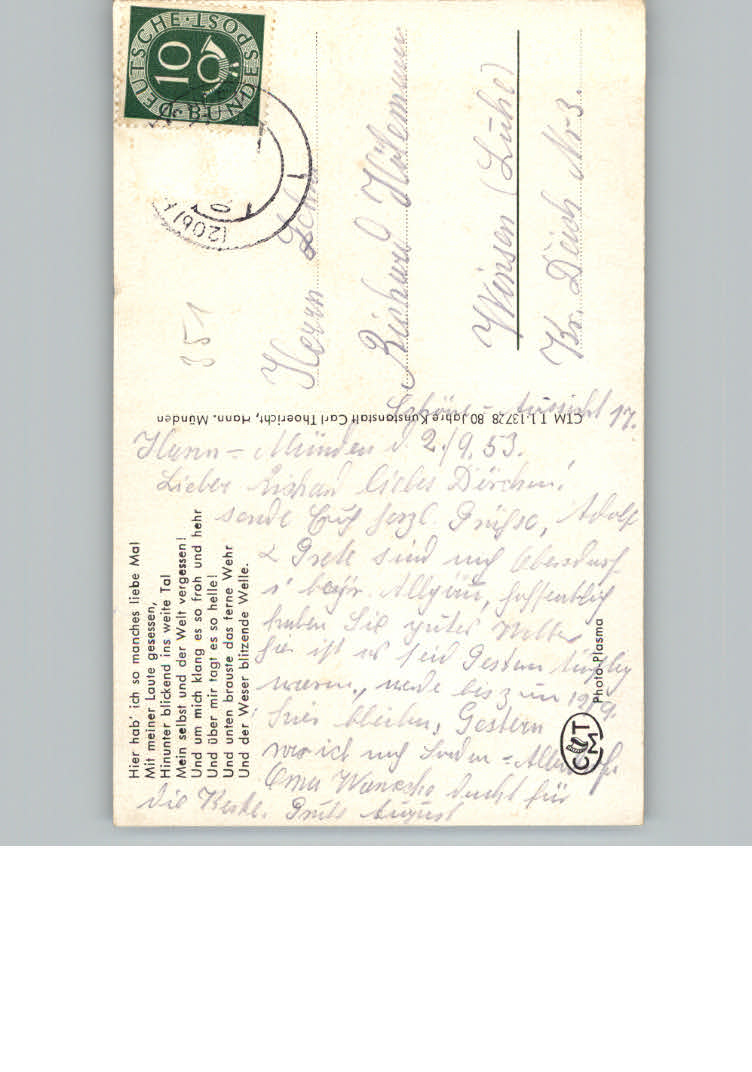 DEUTSCHE BUNDESPOST
10
(20b)
351
Herrn
Richard
Winsen (Luhe)
Kr. Deich Nr 3.
CTM T 1·13728 80 Jahre Kunstanstalt Carl Thoericht, Hann. Münden
Hier hab' ich so manches liebe Mal
Mit meiner Laute gesessen,
Hinunter blickend ins weite Tal
Mein selbst und der Welt vergessen!
Und um mich klang es so froh und hehr
Und über mir tagt es so helle!
Und unten brauste das ferne Wehr
Und der Weser blitzende Welle.
Schöne-Aussicht 17.
Hann-Münden d 2./9.53.
Lieber Richard liebes Dorchen!
sende Euch herzl. Grüße, Adolf
& Grete sind nach Oberstdorf
bayr. Allgäu, hoffentlich
haben Sie gutes Wetter
hier ist es seid Gestern
werde bis zum 19/9.
hier bleiben, Gestern
war ich nach
Oma
die Gruß August
CMT
Photo-Plasma